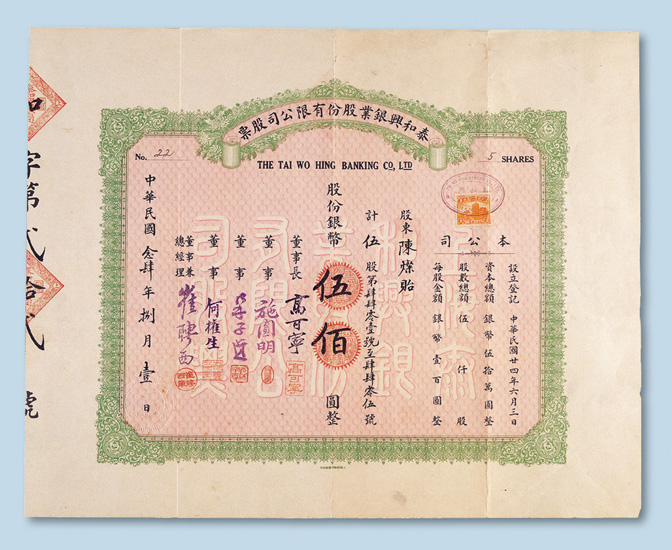 泰和興銀業股份有限公司股票
No. 22
5 SHARES
THE TAI WO HING BANKING CO, LTD
本公司
設立登記 中華民國廿四年六月三日
資本總額 銀幣伍拾萬圓整
股數總額 伍仟股
每股金額 銀幣壹百圓整
股東 陳燦貽
計伍股第肆肆零壹號至肆肆零伍號
股份銀幣伍佰圓整
董事長 高可寧
董事 施圓明
董事
董事 何權生
董事兼總經理 崔聘西
中華民國念肆年捌月壹日
和字第貳拾貳號